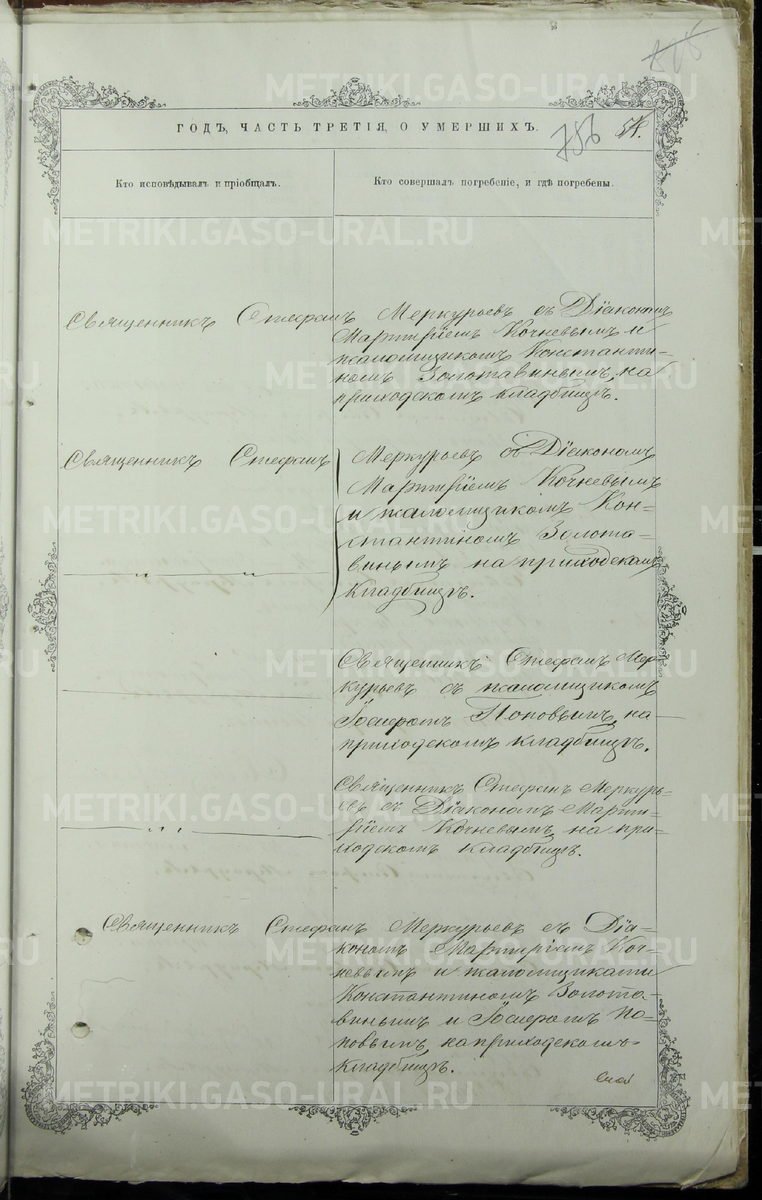 ГОДЪ, ЧАСТЬ ТРЕТІЯ, О УМЕРШИХЪ.
786
Кто исповѣдывалъ и пріобщалъ.
Кто совершалъ погребеніе, и гдѣ погребены.
Священникъ Стефанъ Меркурьевъ съ Діакономъ
Мартиріемъ Кочневымъ и
псаломщикомъ Константи-
номъ Золотавинымъ, на
приходскомъ кладбищѣ.
Священникъ Стефанъ Меркурьевъ съ Діакономъ
Мартиріемъ Кочневымъ
и псаломщикомъ Кон-
стантиномъ Золота-
винымъ на приходскомъ
кладбищѣ.
Священникъ Стефанъ Мер
курьевъ съ псаломщикомъ
Іосифомъ Поповымъ, на
приходскомъ кладбищѣ.
Священникъ Стефанъ Меркурь-
евъ съ Діакономъ Марти-
ріемъ Кочневымъ на при-
ходскомъ кладбищѣ.
Священникъ Стефанъ Меркурьевъ съ Діа-
кономъ Мартиріемъ Коч-
невымъ и псаломщиками
Константиномъ Золота-
винымъ и Іосифомъ По-
повымъ, на приходскомъ
кладбищѣ.
METRIKI.GASO-URAL.RU